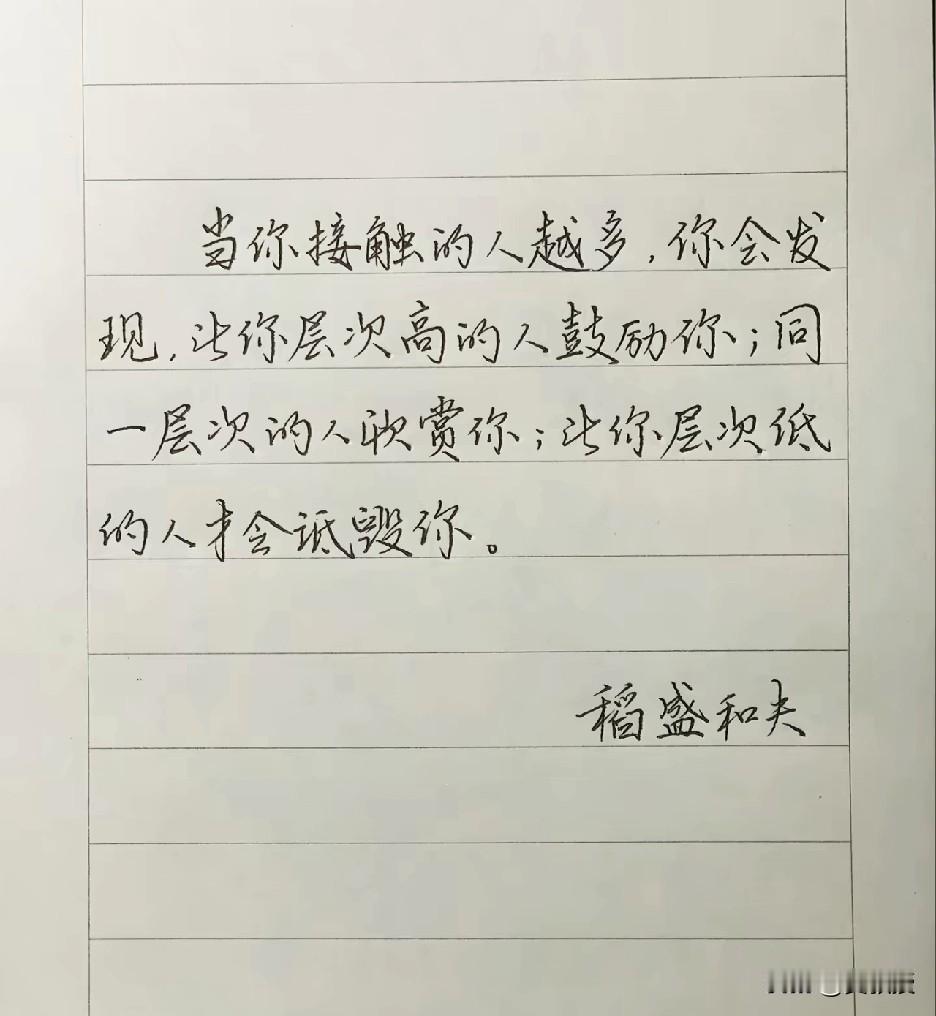 当你接触的人越多，你会发
现，比你层次高的人鼓励你；同
一层次的人欣赏你；比你层次低
的人才会诋毁你。
稻盛和夫